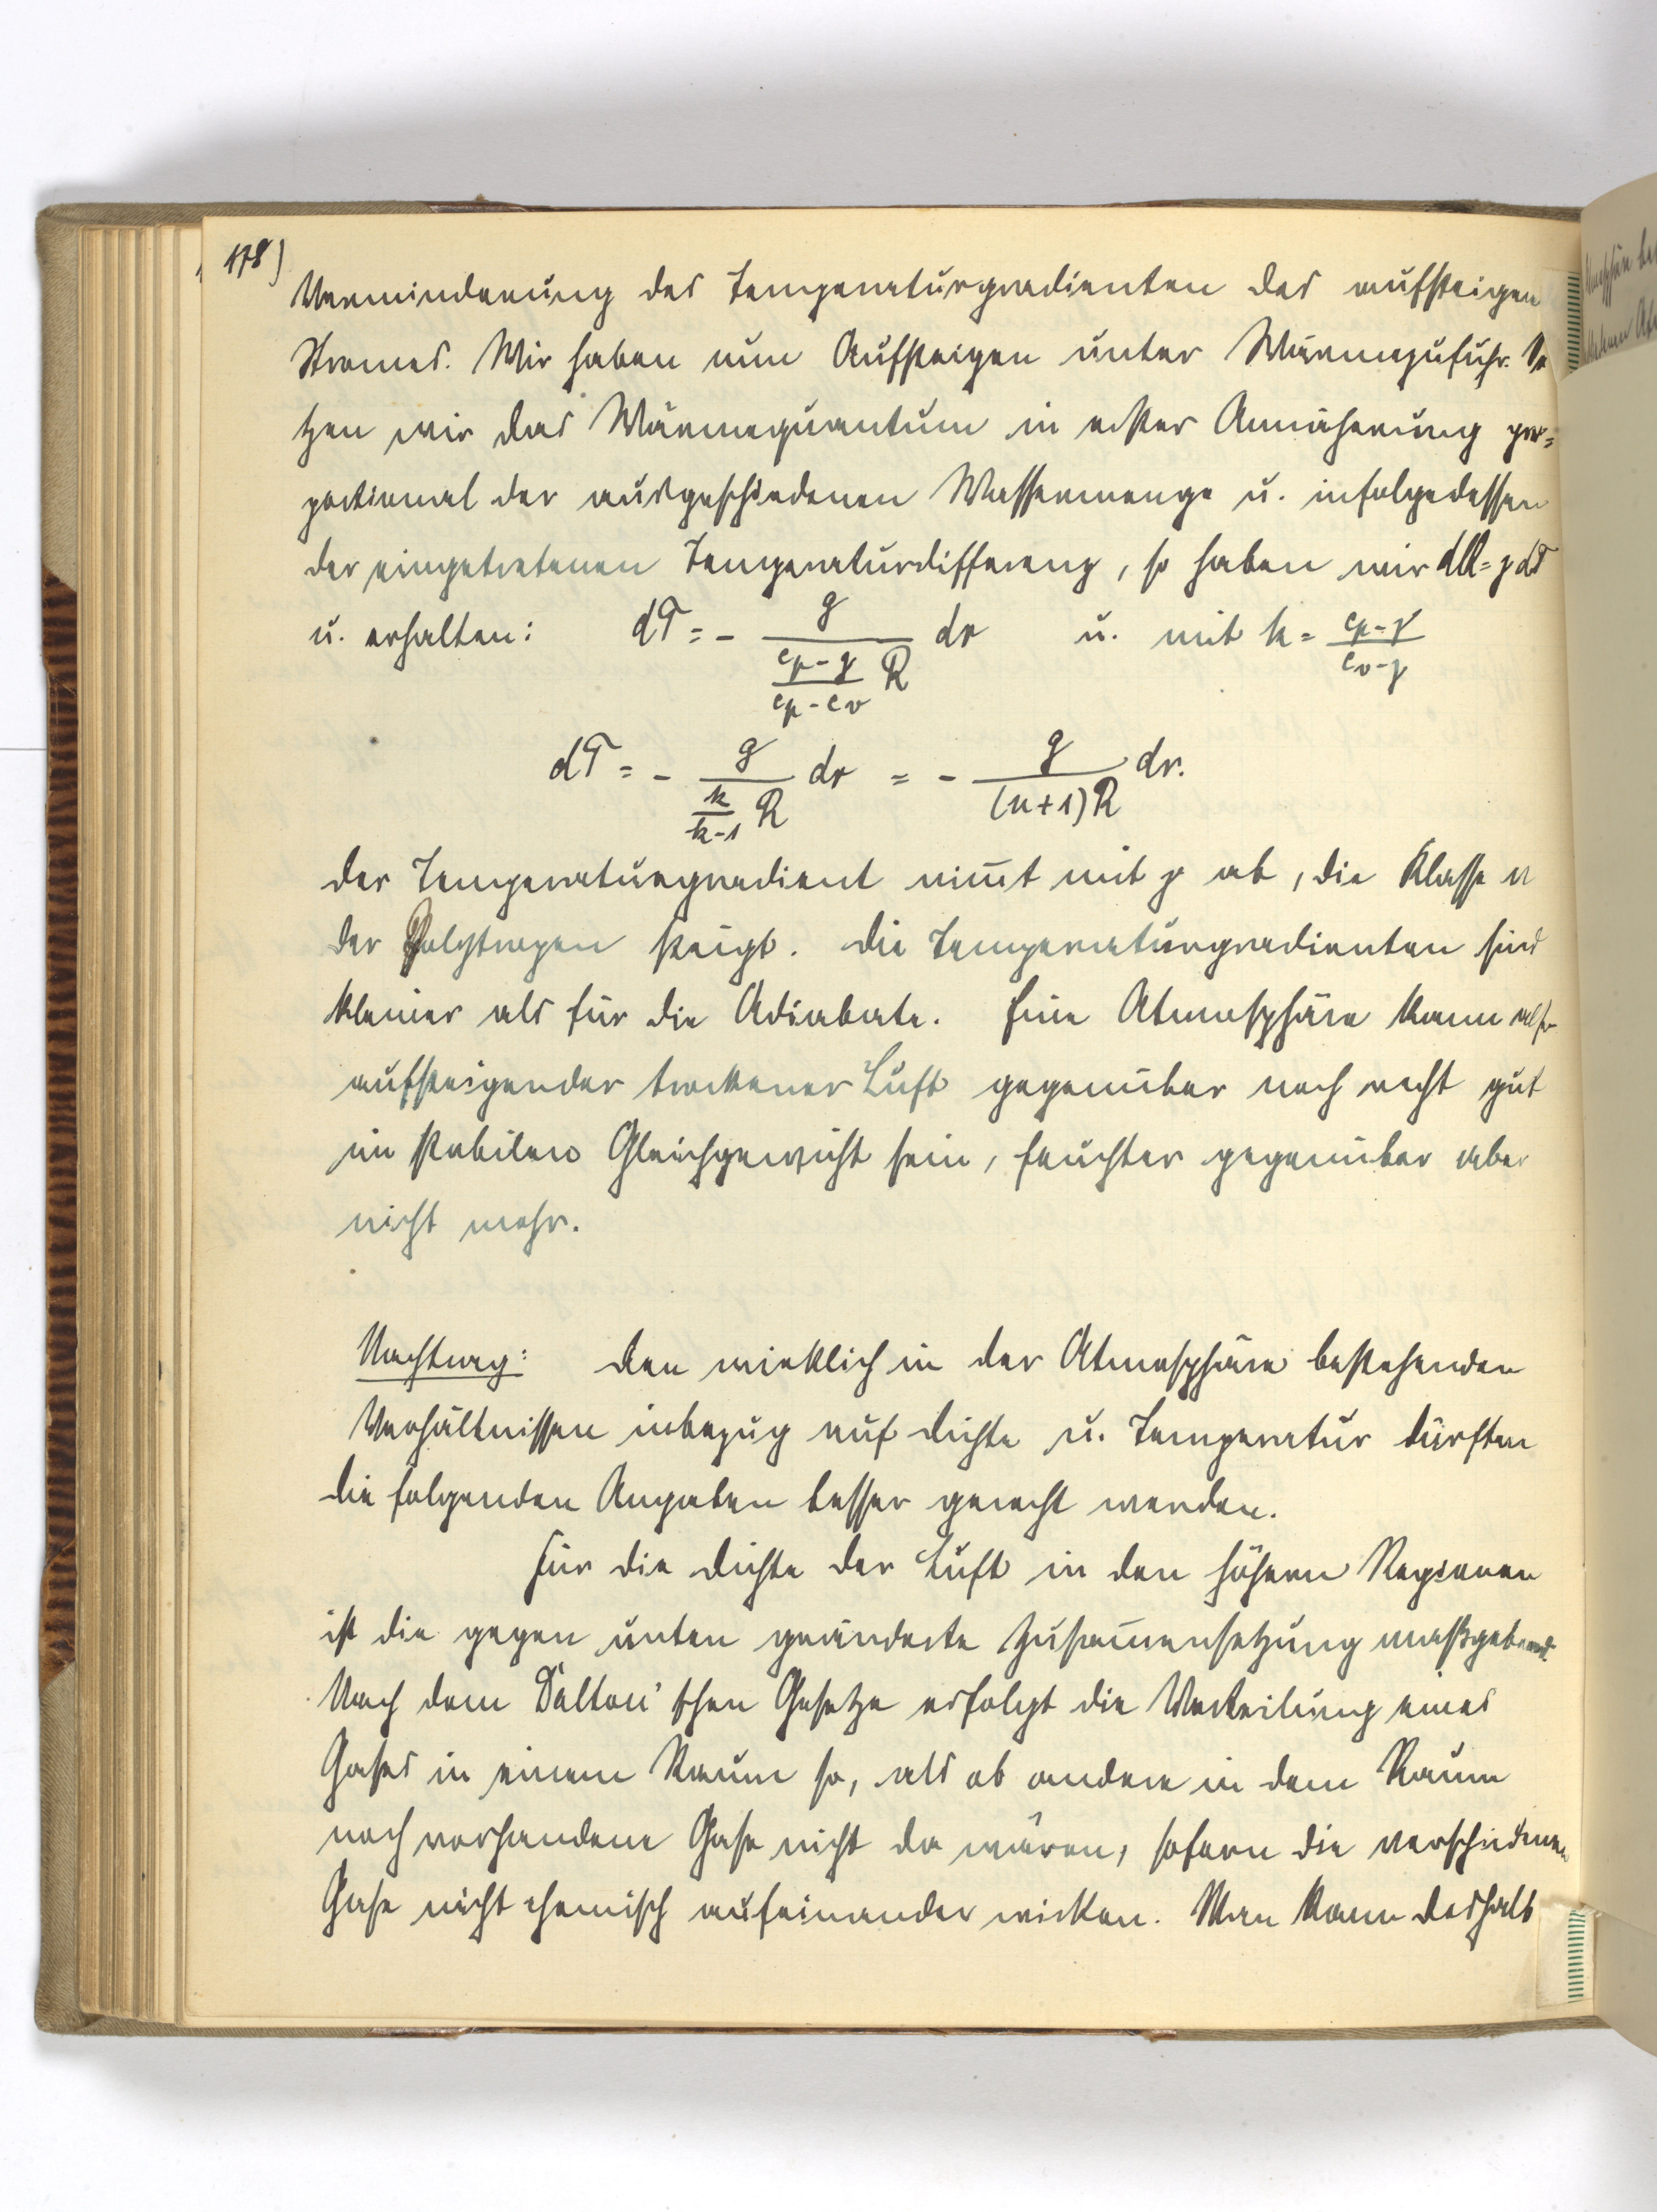 178)
Verminderung des Temperaturgradienten des aufsteigen
Stromes. Wir haben nun Aufsteigen unter Wärmezufuhr. Se
tzen wir das Wärmequantum in erster Annäherung pro=
portional der ausgeschiedenen Wassermenge u. infolgedessen
der eingetretenen Temperaturdifferenz, so haben wir dQ = γ dT
u. erhalten: dT = - g / ((cp - γ)/(cp - cv) R) dr u. mit k = (cp - γ)/(cv - γ)
dT = - g / (k/(k-1) R) dr = - g / ((n+1) R) dr.
Der Temperaturgradient nim̅t mit γ ab, die Klasse n
der Polytropen steigt. Die Temperaturgradienten sind
kleiner als für die Adiabate. Eine Atmosphäre kann also
aufsteigender trockener Luft gegenüber noch recht gut
im stabilen Gleichgewicht sein, feuchter gegenüber aber
nicht mehr.
Nachtrag: Den wirklich in der Atmosphäre bestehenden
Verhältnissen inbezug auf Dichte u. Temperatur dürften
die folgenden Angaben besser gerecht werden.
Für die Dichte der Luft in den höhern Regionen
ist die gegen unten geänderte Zusam̅ensetzung maßgebend.
Nach dem Dalton'schen Gesetze erfolgt die Verteilung eines
Gases in einem Raum so, als ob andere in dem Raum
noch vorhandene Gase nicht da wären, sofern die verschiedenen
Gase nicht chemisch aufeinander wirken. Man kann deshalb